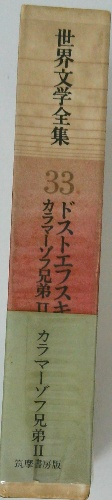 世界文学全集
33
ドストエフスキ
カラマーゾフ兄弟II
カラマーゾフ兄弟II
筑摩書房版